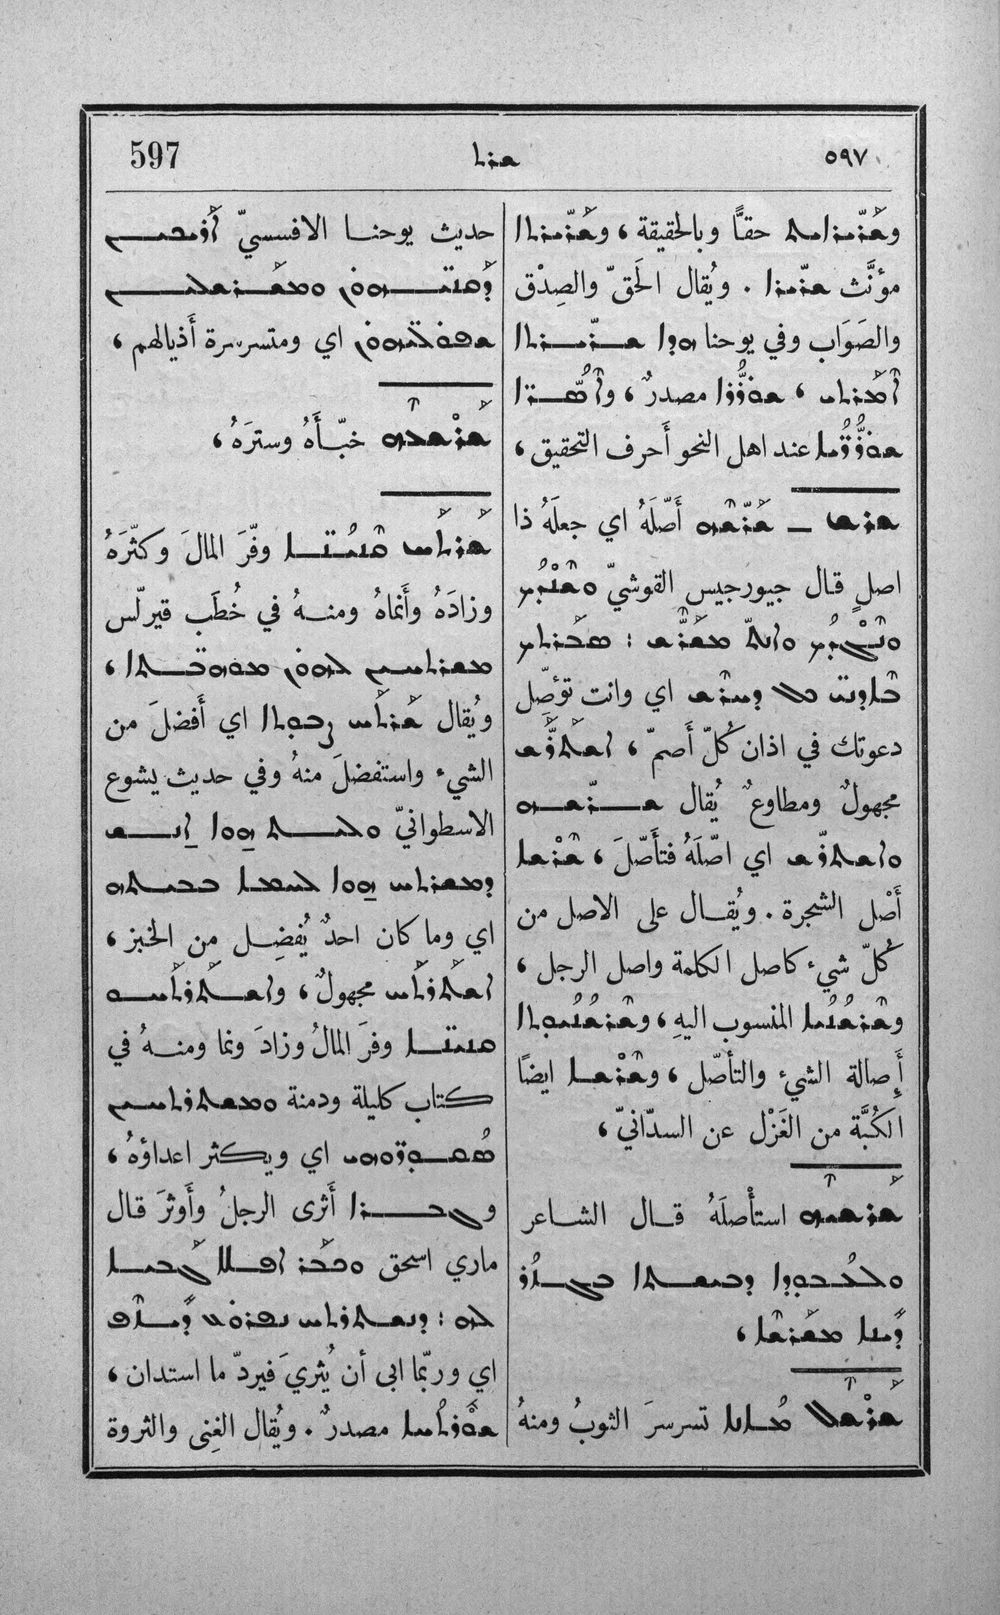 597 ܫܪܬ ٥٩٧
وܫܰܪܝܪܐܝܬ حقًّا وبالحقيقة ، وܫܰܪܝܪܬܐ
مؤنَّث ܫܪܝܪܐ . ويُقال الحَقّ والصِدْق
والصَوَاب وفي يوحنا ܗܕܐ ܫܪܝܪܬܐ
ܐܡܪܬ ، ܫܘܪܪܐ مصدرٌ ، وܐܣܪ̈ܐ
ܫܘܪܪܝܐ عند اهل النحو أَحرف التحقيق ،
ܫܪܫ ــ ܫܰܪܫܗ أَصّلَهُ اي جعلَهُ ذا
اصلٍ قال جيورجيس القوشيّ
ܘܐܢܬ ܡܫܪܫ : ܣܒܪܬܟ
ܒܐܕܢ̈ܝ ܟܠ ܕܚܪܫ اي وانت تؤصّل
دعوتك في اذان كُلّ أَصمّ ، ܐܫܬܪܫ
مجهولٌ ومطاوعٌ يُقال ܫܪܫܗ
ܘܐܫܬܪܫ اي اصّلَهُ فتأَصّلَ ، ܫܪܫܐ
أَصْل الشجرة . ويُقال على الاصل من
كُلّ شيء كاصل الكلمة واصل الرجل ،
وܫܪܫܢܝܐ المنسوب اليهِ ، وܫܪܫܢܝܘܬܐ
أَصالة الشيء والتأصّل ، وܫܪܫܐ ايضًا
الكُبَّة من الغَزْل عن السدّانيّ ،
ܫܪܫܝܗ استأْصلَهُ قال الشاعر
ܘܠܥܒܘܕܐ ܕܒܝܫܬܐ ܒܓܝܗܪ
ܕܝܢܐ ܡܫܪܫܐ ،
ܫܪܫܠ ܡܐܢܐ تسرسرَ الثوبُ ومنهُ
حديث يوحنا الافسسيّ
ܘܡܫܪܫܠܝܢ
ܫܦܘܠܝ̈ܗܘܢ اي ومتسرسرة أَذيالهم ،
ܫܪܫܒܗ خبّأَهُ وسترَهُ ،
ܫܪܬܚ ܩܢܝܢ̈ܐ وفّرَ المالَ وكثّرَهُ
وزادَهُ وأَنماهُ ومنهُ في خُطَب قيرلّس
ܡܫܪܬܚܝܢ ܠܗܘܢ ܡܘܗܒ̈ܬܐ ،
ويُقال ܫܪܬܚ ܨܒܘܬܐ اي أَفضلَ من
الشيء واستفضلَ منهُ وفي حديث يشوع
الاسطوانيّ ܘܠܝܬ ܗܘܐ ܐܢܫ
ܕܡܫܪܬܚ ܗܘܐ ܠܚܡܐ ܒܒܝܬܗ
اي وما كان احدٌ يُفضِل مِن الخبز ،
ܐܫܬܪܬܚ مجهولٌ ، وܐܫܬܪܬܚܘ
ܩܢܝܢ̈ܐ وفرَ المالُ وزادَ ونما ومنهُ في
كتاب كليلة ودمنة ܘܡܫܬܪܬܚܝܢ
ܣܩܘܒ̈ܠܘܗܝ اي ويكثر اعداؤهُ ،
وܓܒܪܐ أَثرى الرجلُ وأَوثرَ قال
ماري اسحق ܘܟܒܪ ܐܦܠܐ ܨܒܝܐ
ܠܗ : ܕܢܫܬܪܬܚ ܢܦܪܘܥ ܕܝܙܦ
اي وربّما ابى أن يُثريَ فيردّ ما استدان ،
ܫܘܪܬܚܐ مصدرٌ . ويُقال الغِنى والثروة